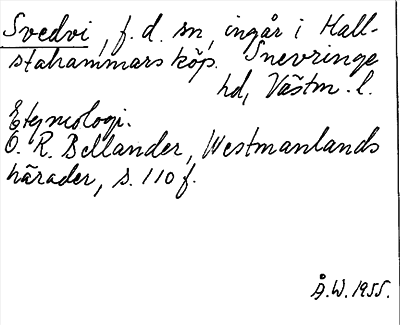 Svedvi, f. d. sn, ingår i Hall-
stahammars köp. Snevringe
hd, Västm. l.
Etymologi.
O. R. Bellander, Westmanlands
härader, s. 110 f.
Å. W. 1955.